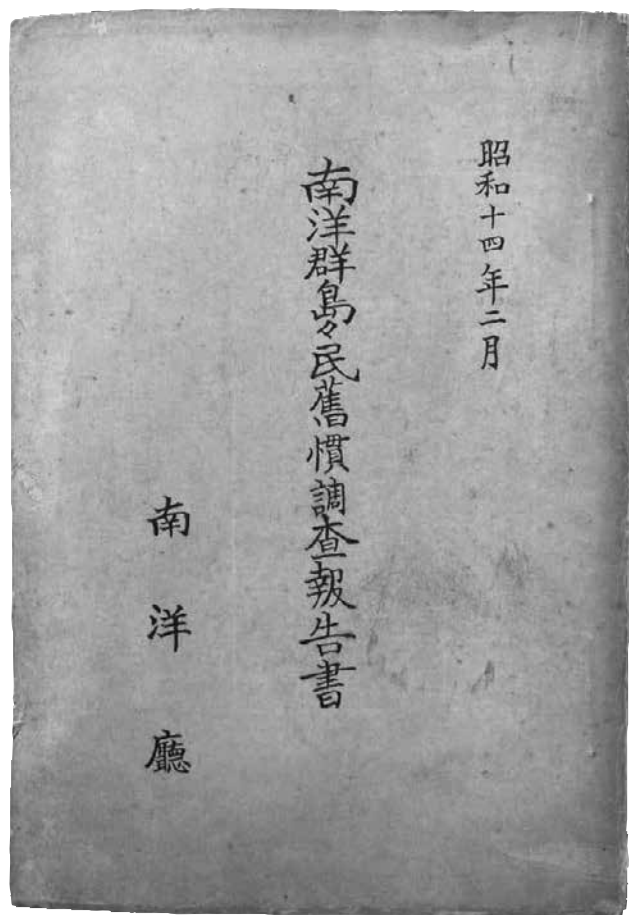 昭和十四年二月
南洋群島々民舊慣調査報告書
南洋廳